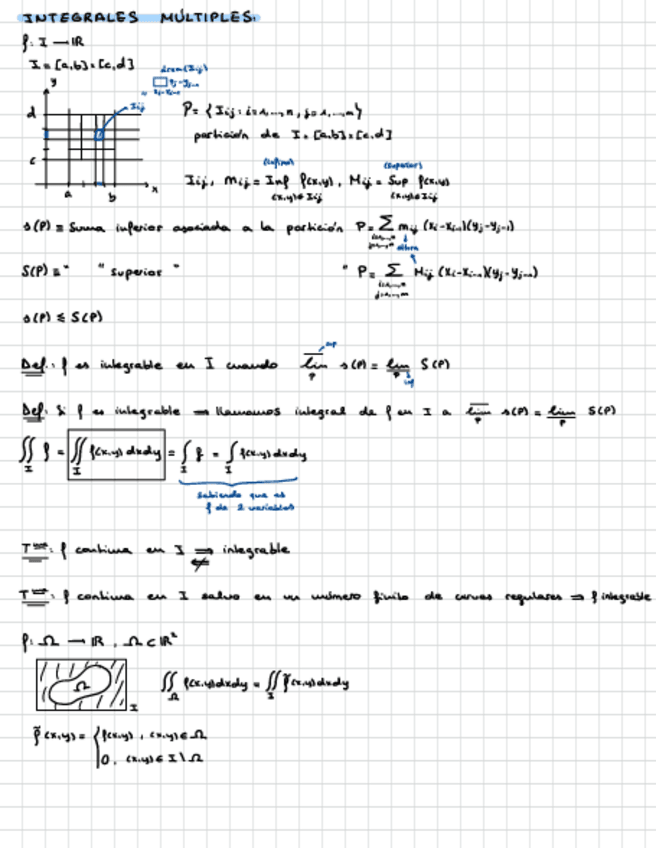 INTEGRALES MÚLTIPLES.
f: I → ℝ
I = [a,b]×[c,d]
área(Iij)
yj-yj-1
xi-xi-1
y
d
Iij
c
a b x
P = {Iij : i=1,...,n, j=1,...,m}
partición de I = [a,b]×[c,d]
(ínfimo) (superior)
Iij, mij = Inf f(x,y), Mij = Sup f(x,y)
(x,y)∈Iij (x,y)∈Iij
s(P) ≡ Suma inferior asociada a la partición P = Σ mij (xi-xi-1)(yj-yj-1)
i=1,...,n
j=1,...,m
altura
S(P) ≡ " " superior " " P = Σ Mij (xi-xi-1)(yj-yj-1)
i=1,...,n
j=1,...,m
s(P) ≤ S(P)
sup
Def.: f es integrable en I cuando lim s(P) = lim S(P)
P P
inf
Def: Si f es integrable ⇒ llamamos integral de f en I a lim s(P) = lim S(P)
P P
∬ f = ∬ f(x,y) dxdy = ∫ f = ∫ f(x,y) dxdy
I I I I
sabiendo que es
f de 2 variables
Tma: f continua en I ⇒ integrable
⇍
Tma: f continua en I salvo en un número finito de curvas regulares ⇒ f integrable
f: Ω → ℝ, Ω ⊂ ℝ²
Ω
I
∬ f(x,y)dxdy = ∬ f̃(x,y)dxdy
Ω I
f̃(x,y) = { f(x,y), (x,y)∈Ω
0, (x,y)∈ I\Ω